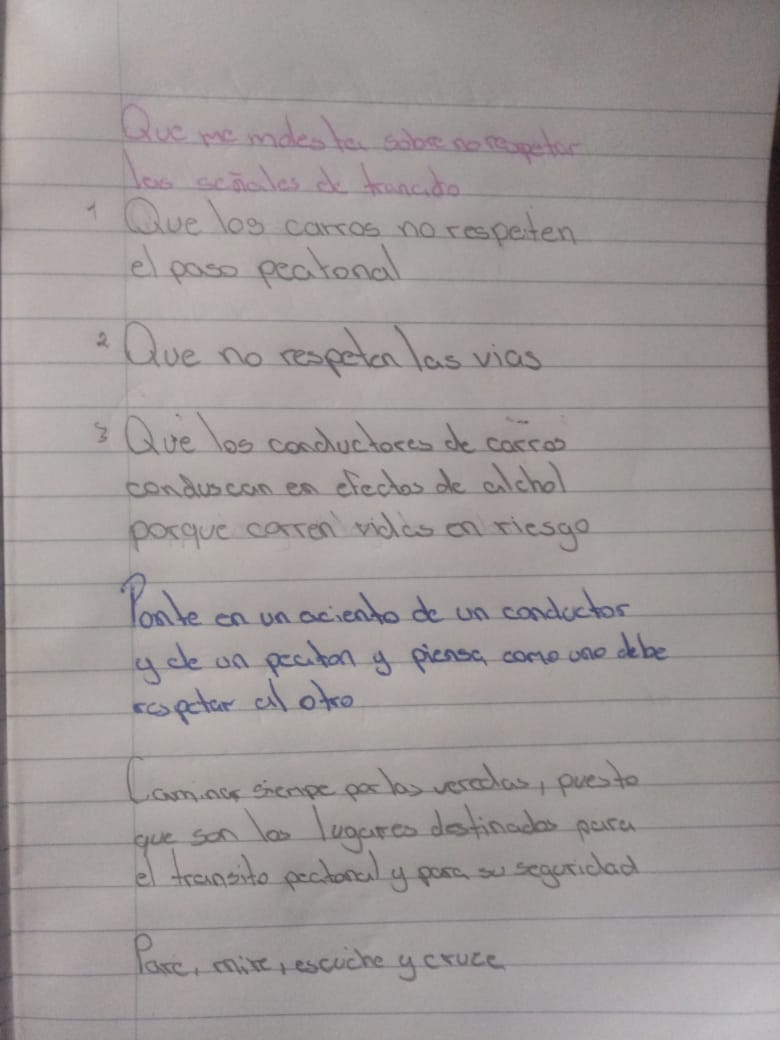 Que me molesta sobre no respetar
las señales de trancido
1 Que los carros no respeten
el paso peatonal
2 Que no respeten las vias
3 Que los conductores de carros
conduscan en efectos de alchol
porque corren vidas en riesgo
Ponte en un aciento de un conductor
y de un peaton y piensa como uno debe
respetar al otro
Caminar siempe por las veredas, puesto
que son los lugares destinados para
el transito peatonal y para su seguridad
Pare, mire, escuche y cruce